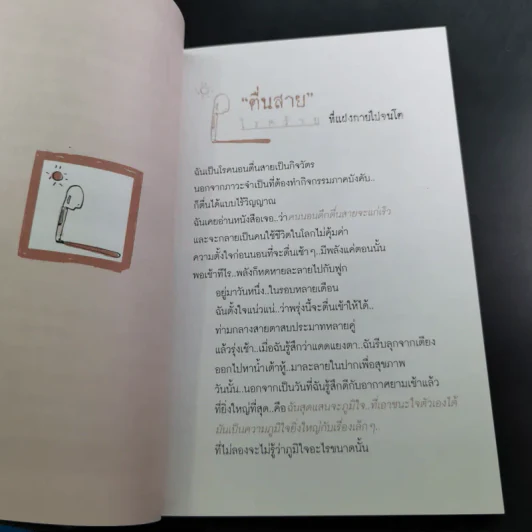 "ตื่นสาย"
โรคร้าย ที่แฝงกายไปจนโต
ฉันเป็นโรคนอนตื่นสายเป็นกิจวัตร
นอกจากภาวะจำเป็นที่ต้องทำกิจกรรมภาคบังคับ..
ก็ตื่นได้แบบไร้วิญญาณ
ฉันเคยอ่านหนังสือเจอ..ว่าคนนอนดึกตื่นสายจะแก่เร็ว
และจะกลายเป็นคนใช้ชีวิตในโลกไม่คุ้มค่า
ความตั้งใจก่อนนอนที่จะตื่นเช้าๆ..มีพลังแค่ตอนนั้น
พอเช้าทีไร..พลังก็หดหายละลายไปกับฟูก
อยู่มาวันหนึ่ง..ในรอบหลายเดือน
ฉันตั้งใจแน่วแน่..ว่าพรุ่งนี้จะตื่นเช้าให้ได้..
ท่ามกลางสายตาสบประมาทหลายคู่
แล้วรุ่งเช้า..เมื่อฉันรู้สึกว่าแดดแยงตา..ฉันรีบลุกจากเตียง
ออกไปหาน้ำเต้าหู้..มาละลายในปากเพื่อสุขภาพ
วันนั้น..นอกจากเป็นวันที่ฉันรู้สึกดีกับอากาศยามเช้าแล้ว
ที่ยิ่งใหญ่ที่สุด..คือฉันสุดแสนจะภูมิใจ..ที่เอาชนะใจตัวเองได้
มันเป็นความภูมิใจยิ่งใหญ่กับเรื่องเล็กๆ..
ที่ไม่ลองจะไม่รู้ว่าภูมิใจอะไรขนาดนั้น